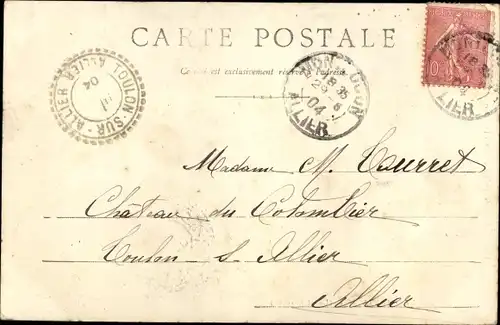 CARTE POSTALE
Ce côté est exclusivement réservé à l'adresse
TOULON-SUR-ALLIER
ALLIER
04
29 - 6
04
ALLIER
ALLIER
Madame M. Tourret
Château du Colombier
Toulon s. Allier
Allier